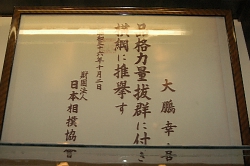 大鵬幸喜
品格力量抜群に付き
横綱に推挙す
昭和三十六年十月二日
財団法人
日本相撲協會